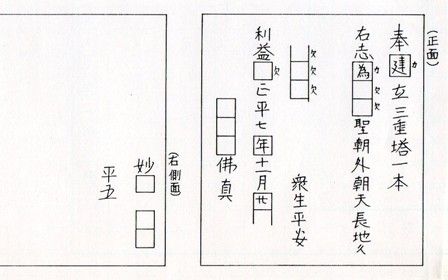 (正面)
奉建カ立三重塔一本
右志為カ□欠□欠聖朝外朝天長地久
□欠□欠□欠 衆生平安
利益□欠正平七年十一月廿
□□□佛真
(右側面)
妙□ □□
平五